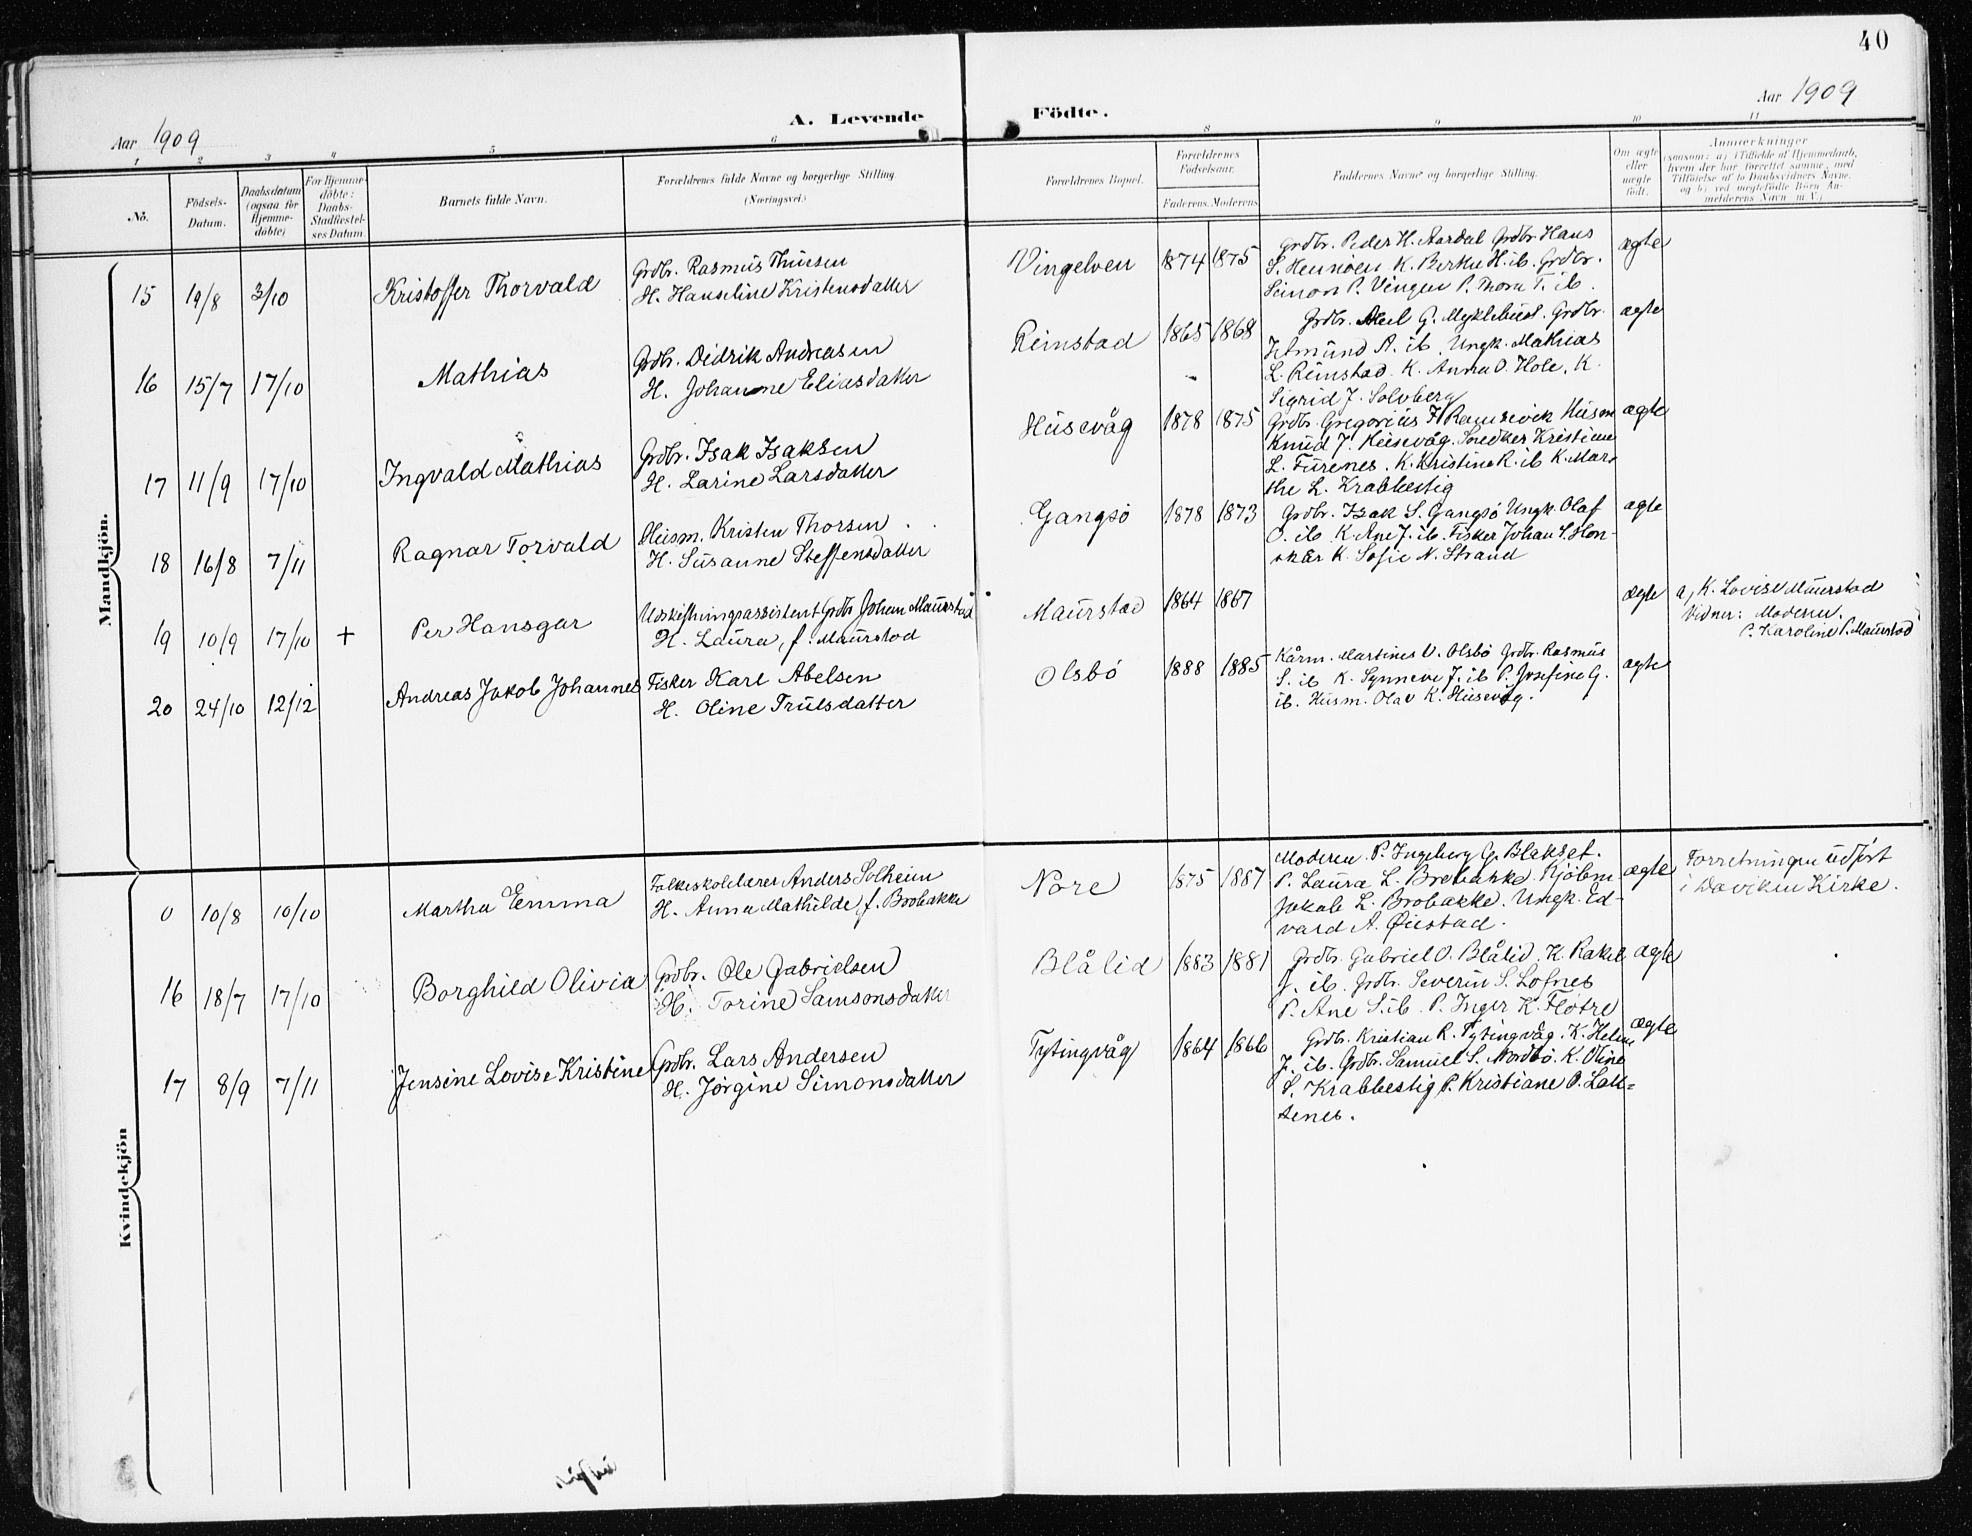 40
Aar 1909
A. Levende Födte.
Aar 1909
1 2 3 4 5 6 8 9 10 11
No.
Födsels-Datum.
Daabsdatum (ogsaa for Hjemme-döbte)
For Hjemme-döbte: Daabs-Stadfæstel-ses Datum
Barnets fulde Navn.
Forældrenes fulde Navne og borgerlige Stilling. (Næringsvei.)
Forældrenes Bopæl.
Forældrenes Födselsaar.
Faderens. Moderens
Faddernes Navne og borgerlige Stilling.
Om ægte eller uægte födt.
Anmærkninger
(saasom: a) i Tilfælde af Hjemmedaab, hvem der har forrettet samme, med Tilföielse af to Daabsvidners Navne, og b) ved uægtefödte Börn An-melderens Navn m.V.)
Mandkjön.
15 19/8 3/10 Kristoffer Thorvald
Grdbr. Rasmus Thuesen
H. Hanseline Kristensdatter
Vingelven 1874 1875
Grdbr. Peder H. Aardal Grdbr. Hans
S. Hennöen K. Berthe H. ib. Grdbr.
Simon P. Vingen P. Thora T. ib.
ægte
16 15/7 17/10 Mathias
Grdbr. Didrik Andreasen
H. Johanne Eliasdatter
Reimstad 1865 1868
Grdbr. Abel G. Myklebust. Grdbr.
A. ib. Ungk. Mathias
L. Reimstad K. Anna O. Hole, K.
Sigrid J. Solvberg
ægte
17 11/9 17/10 Ingvald Mathias
Grdbr. Isak Isaksen
H. Larine Larsdatter
Husevåg 1878 1875
Grdbr. Gregorius F. Ramsevik Husm
Knud J. Husevåg. Snedker Kristian
L. Furenes. K. Kristine R. ib K. Mar-
the L. Krabbestig
ægte
18 16/8 7/11 Ragnar Torvald
Husm. Kristen Thorsen
H. Susanne Steffensdatter
Gangsö 1878 1873
Grdbr. Isak S. Gangsö Ungk. Olaf
O. ib. K. Ane J. ib. Fisker Johan S. Hon-
skår K. Sofie N. Strand
ægte
19 10/9 17/10 + Per Hansgar
Udskiftningsassistent Grdbr Johan Maurstad
H. Laura, f. Maurstad
Maurstad 1864 1867
ægte
a) K. Lovise Maurstad
Vidner: Moderen.
P. Karoline P. Maurstad
20 24/10 12/12 Andreas Jakob Johannes
Fisker Karl Abelsen
H. Oline Trulsdatter
Olsbö 1888 1885
Kårm. Martines O. Olsbö Grdbr. Rasmus
S. ib K. Synneve J. ib P. Josefine G.
ib. Husm. Olav K. Husevåg.
ægte
Kvindekjön
0 10/8 10/10 Martha Emma
Folkeskolelærer Anders Solheim
H. Anna Mathilde, f. Brobakke
Nore 1875 1887
Moderen P. Ingeborg G. Blakset.
P. Laura L. Brobakke. Kjöbm
Jakob L. Brobakke. Ungk. Ed-
vard A. Öiestad.
ægte
Forretningen udfört
i Daviken Kirke.
16 18/7 17/10 Borghild Olivia
Grdbr. Ole Gabrielsen
H. Torine Samsonsdatter
Blålid 1883 1881
Grdbr. Gabriel O. Blålid. K. Rakel
J. ib. Grdbr. Severin S. Lofnes
P. Ane S. ib. P. Inger K. Flötre
ægte
17 8/9 7/11 Jensine Lovise Kristine
Grdbr. Lars Andersen
H. Jörgine Simonsdatter
Tytingvåg 1864 1866
Grdbr. Kristian R. Tytingvåg. K. Helene
J. ib. Grdbr. Samuel S. Nordbö. K. Oline
S. Krabbestig P. Kristiane O. Lak-
senes.
ægte